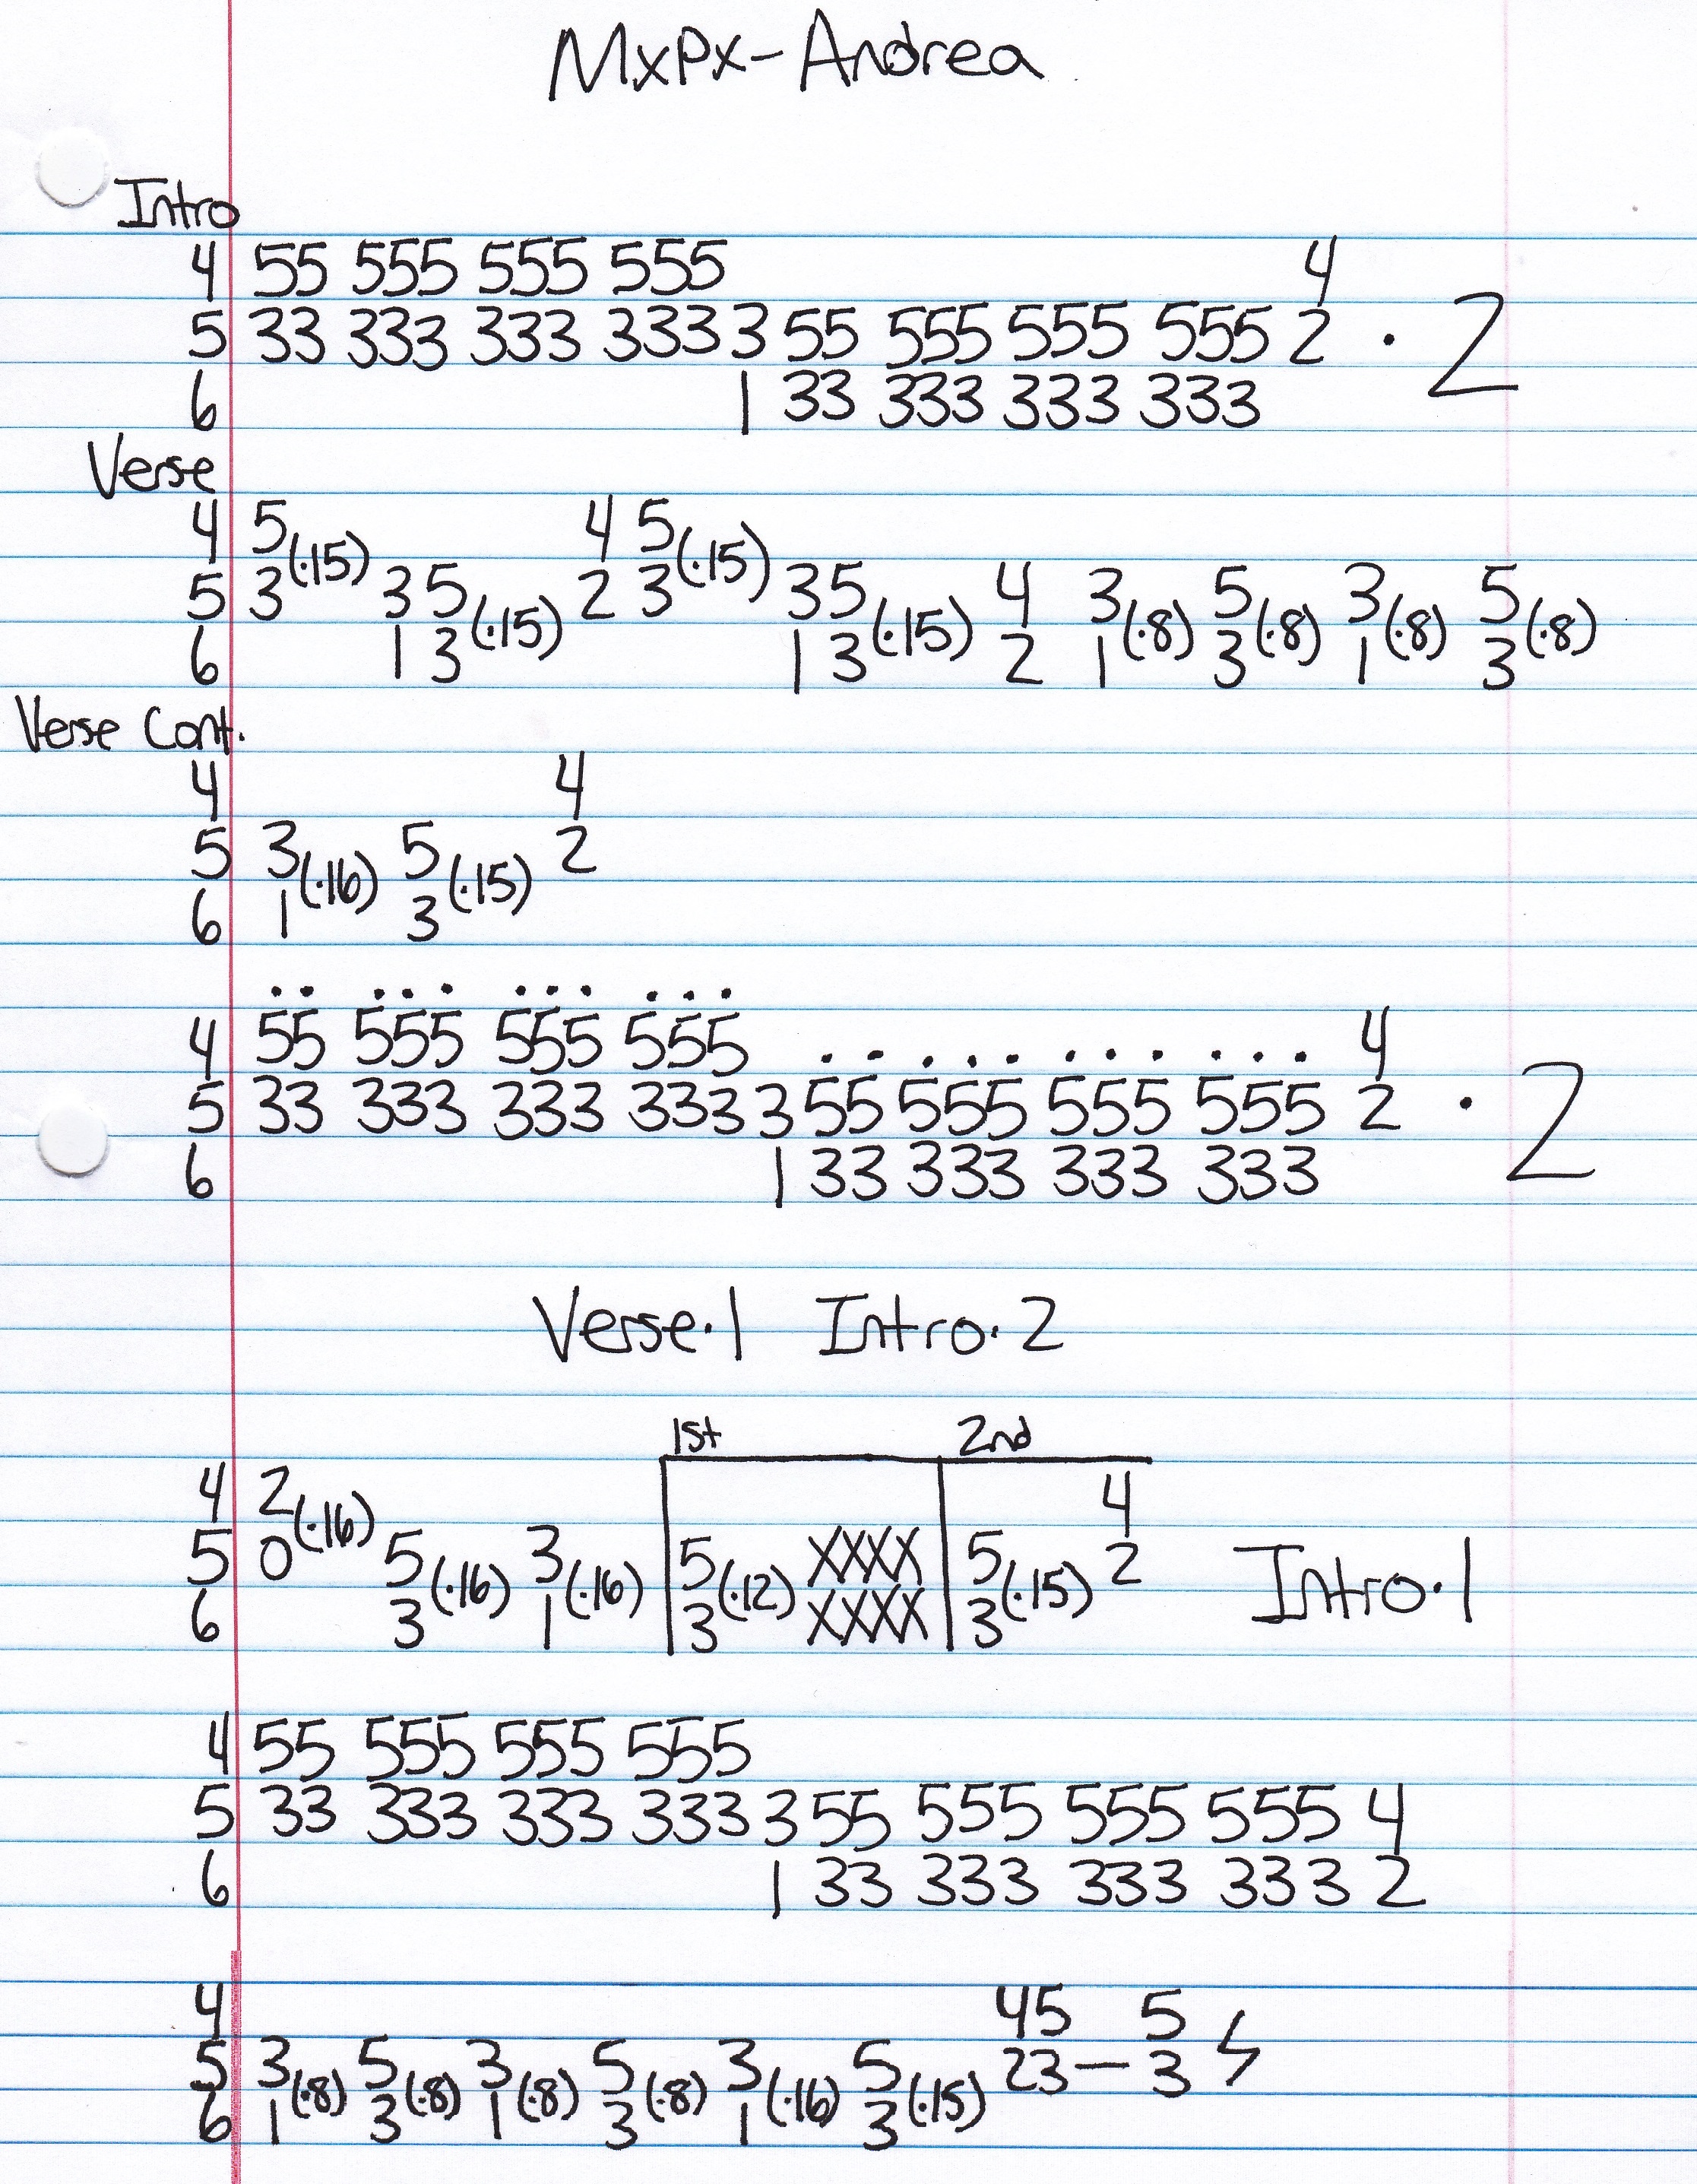 MxPx-Andrea
Intro
4 55 555 555 555 4
5 33 333 333 333 3 55 555 555 555 2 · 2
6 1 33 333 333 333
Verse
4 5 (·15) 4 5 (·15)
5 3 3 5 (·15) 2 3 3 5 (·15) 4 3 (·8) 5 (·8) 3 (·8) 5 (·8)
6 1 3 1 3 2 1 3 1 3
Verse Cont.
4 4
5 3 (·16) 5 (·15) 2
6 1 3
·· ··· ··· ···
4 55 555 555 555 ·· ··· ··· ··· 4
5 33 333 333 333 3 55 555 555 555 2 · 2
6 1 33 333 333 333
Verse·1 Intro·2
1st 2nd
4 2 (·16) 4
5 0 5 (·16) 3 (·16) 5 (·12) XXXX 5 (·15) 2 Intro·1
6 3 1 3 XXXX 3
4 55 555 555 555
5 33 333 333 333 3 55 555 555 555 4
6 1 33 333 333 333 2
4 45 5
5 3 (·8) 5 (·8) 3 (·8) 5 (·8) 3 (·16) 5 (·15) 23 — 3
6 1 3 1 3 1 3